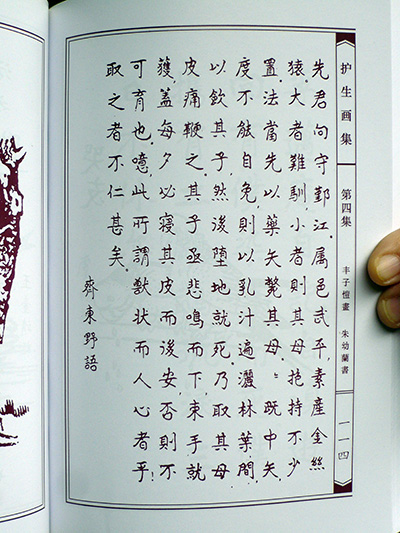 护生画集
第四集
丰子愷畫 朱幼蘭書
一一四
先君向守鄞江。属邑武平,素產金絲
猿。大者難馴,小者則其母抱持不少
置。法當先以藥矢斃其母。既中矢,
度不能自免,則以乳汁遍灑林葉間,
以飲其子,然後墮地就死。乃取其母
皮痛鞭之,其子亟悲鳴而下,束手就
獲。蓋每夕必寢其皮而後安,否則不
可育也。噫,此所謂獸状而人心者乎!
取之者不仁甚矣。
齊東野語